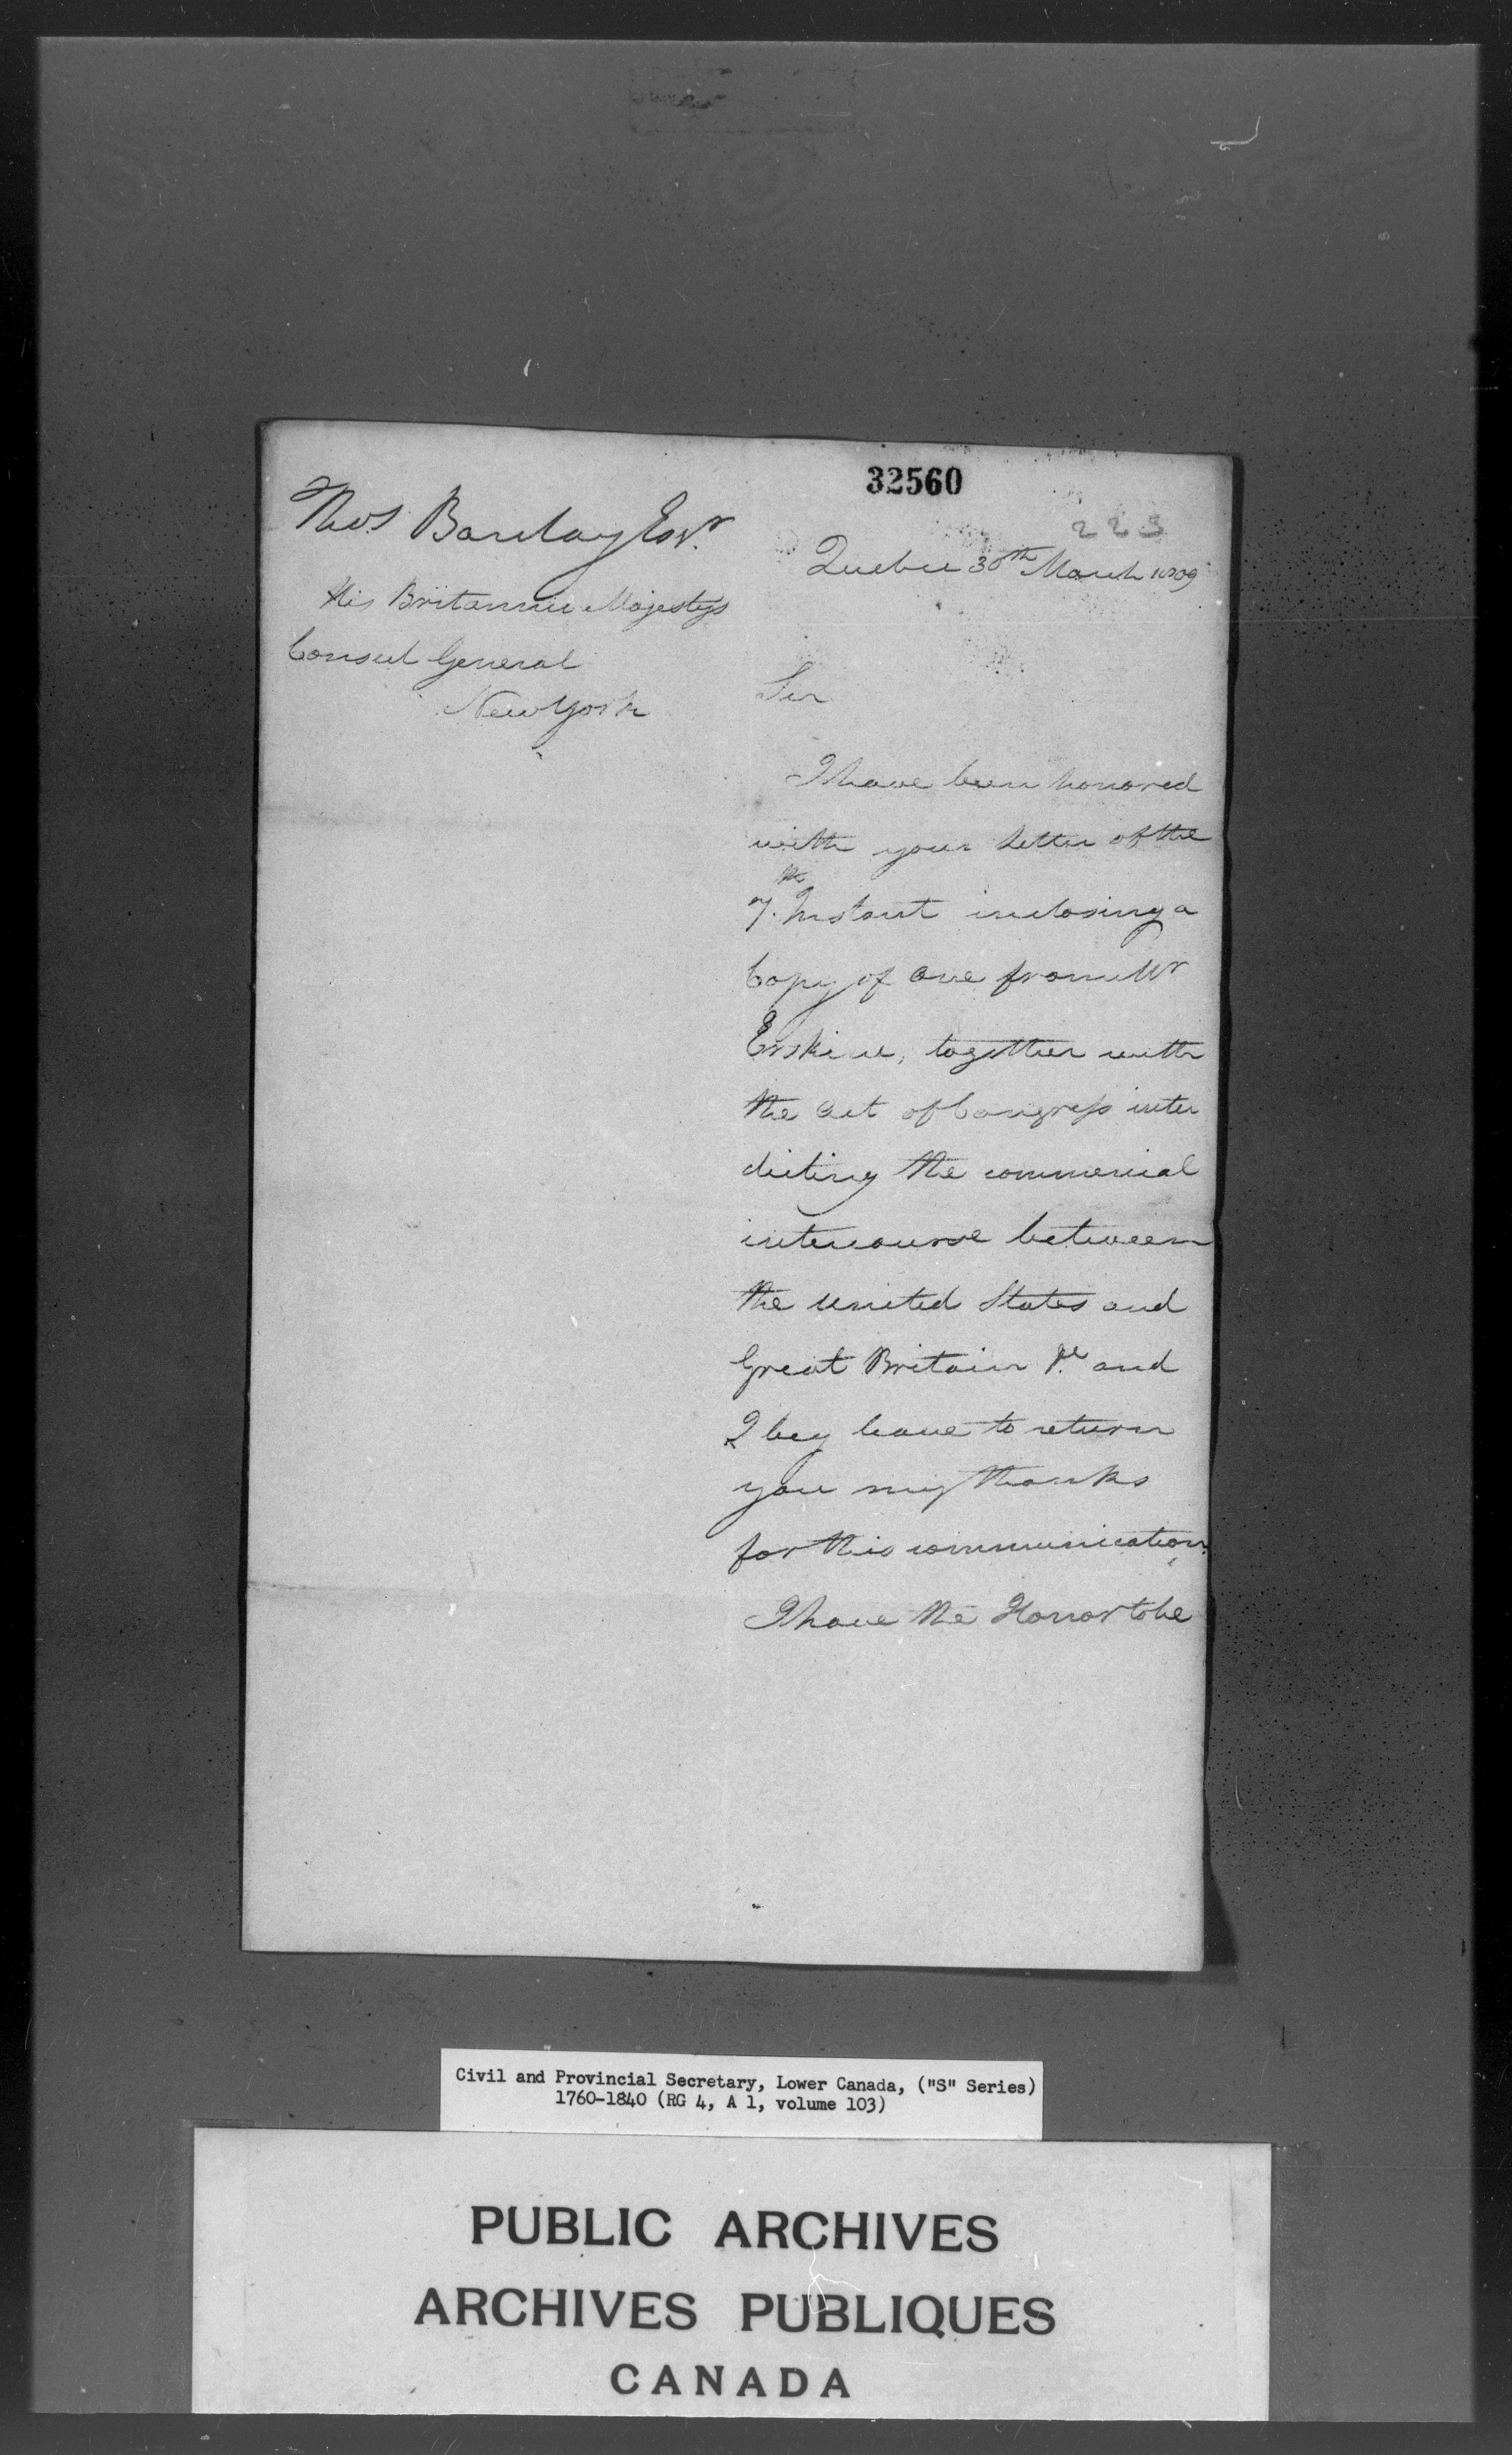 32560
223
Thos Barclay Esqr.
His Britannic Majestys
Consul General
New York
Quebec 30th March 1809
Sir
I have been honored
with your letter of the
7th. Instant inclosing a
Copy of one from Mr
Erskine, together with
the Act of Congress inter
dicting the commercial
intercourse between
the United States and
Great Britain &c. and
I beg leave to return
you my thanks
for this communication.
I have the Honor to be
Civil and Provincial Secretary, Lower Canada, ("S" Series)
1760-1840 (RG 4, A 1, volume 103)
PUBLIC ARCHIVES
ARCHIVES PUBLIQUES
CANADA